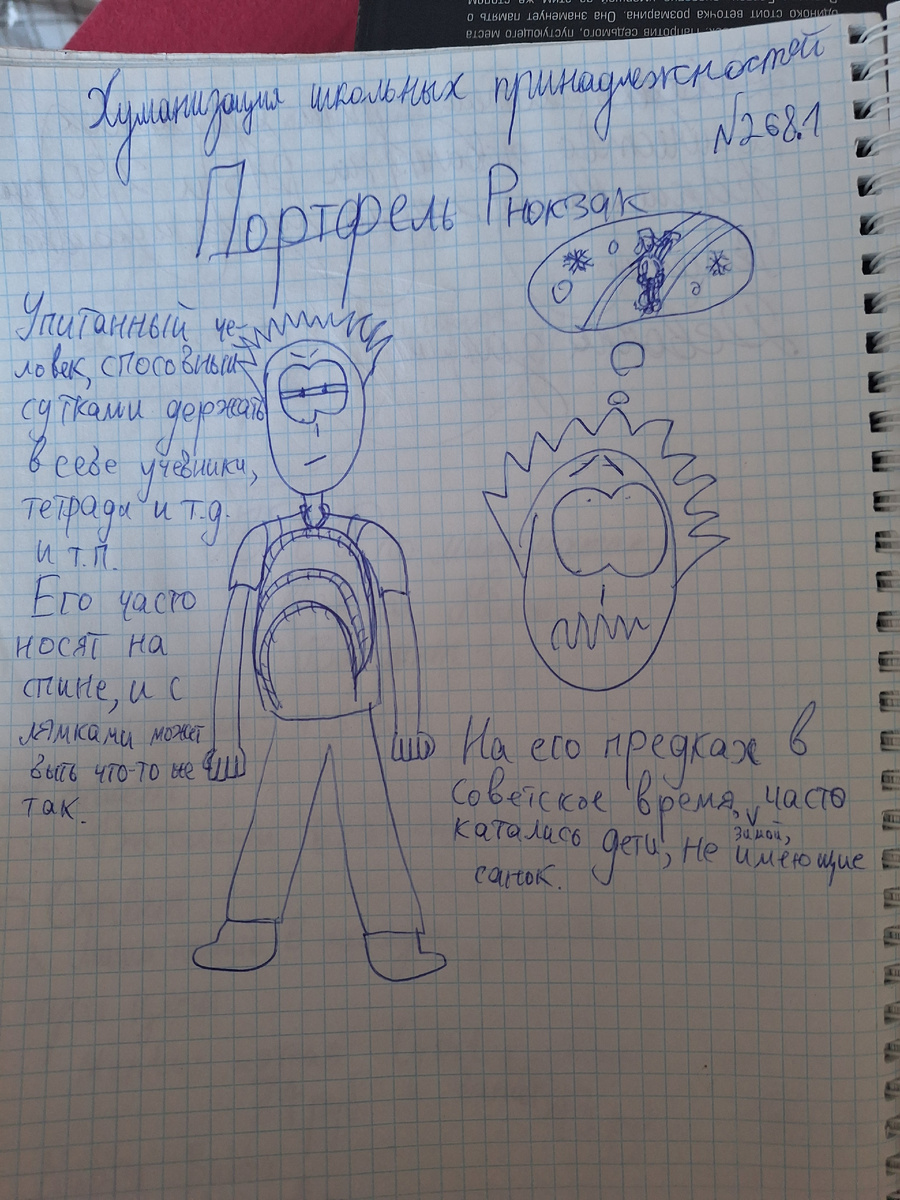 Напротив седьмого, пустующего места
одиноко стоит веточка розмарина. Она знаменует память о
этим же столом
Хуманизация школьных принадлежностей
№268.1
Портфель Рюкзак
Упитанный че-
ловек, способный
сутками держать
в себе учебники,
тетради и т.д.
и т.п.
Его часто
носят на
спине, и с
лямками может
быть что-то не
так.
На его предках в
Советское время, часто
зимой,
катались дети, не имеющие
санок.